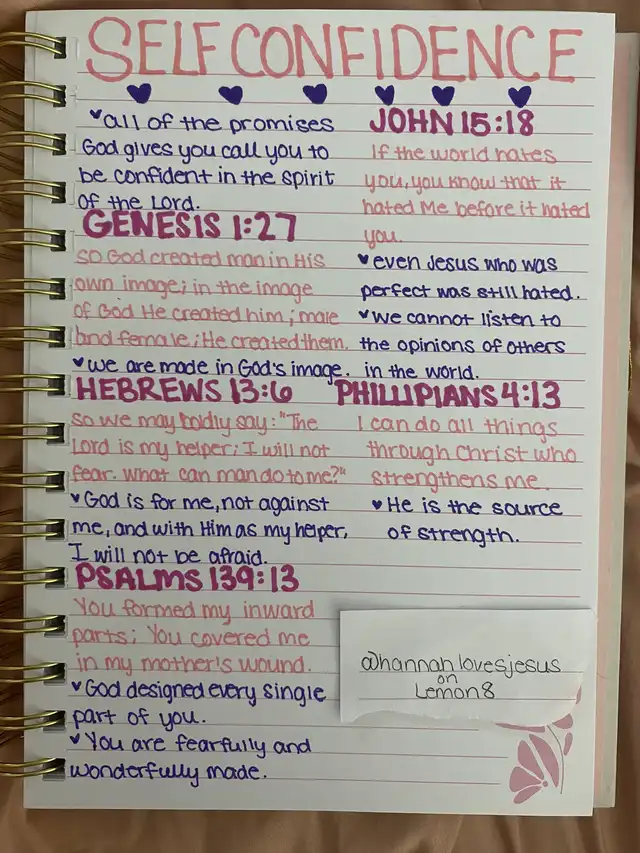 SELF CONFIDENCE
all of the promises
God gives you call you to
be confident in the spirit
of the Lord.
GENESIS 1:27
so God created man in His
own image; in the image
of God He created him; male
and female; He created them.
we are made in God's image.
HEBREWS 13:6
so we may boldly say: "The
Lord is my helper; I will not
fear. What can man do to me?"
God is for me, not against
me, and with Him as my helper,
I will not be afraid.
PSALMS 139:13
You formed my inward
parts; You covered me
in my mother's wound.
God designed every single
part of you.
You are fearfully and
wonderfully made.
JOHN 15:18
If the world hates
you, you know that it
hated Me before it hated
you.
even Jesus who was
perfect was still hated.
we cannot listen to
the opinions of others
in the world.
PHILLIPIANS 4:13
I can do all things
through Christ who
strengthens me.
He is the source
of strength.
@hannahlovesjesus
on
Lemon8